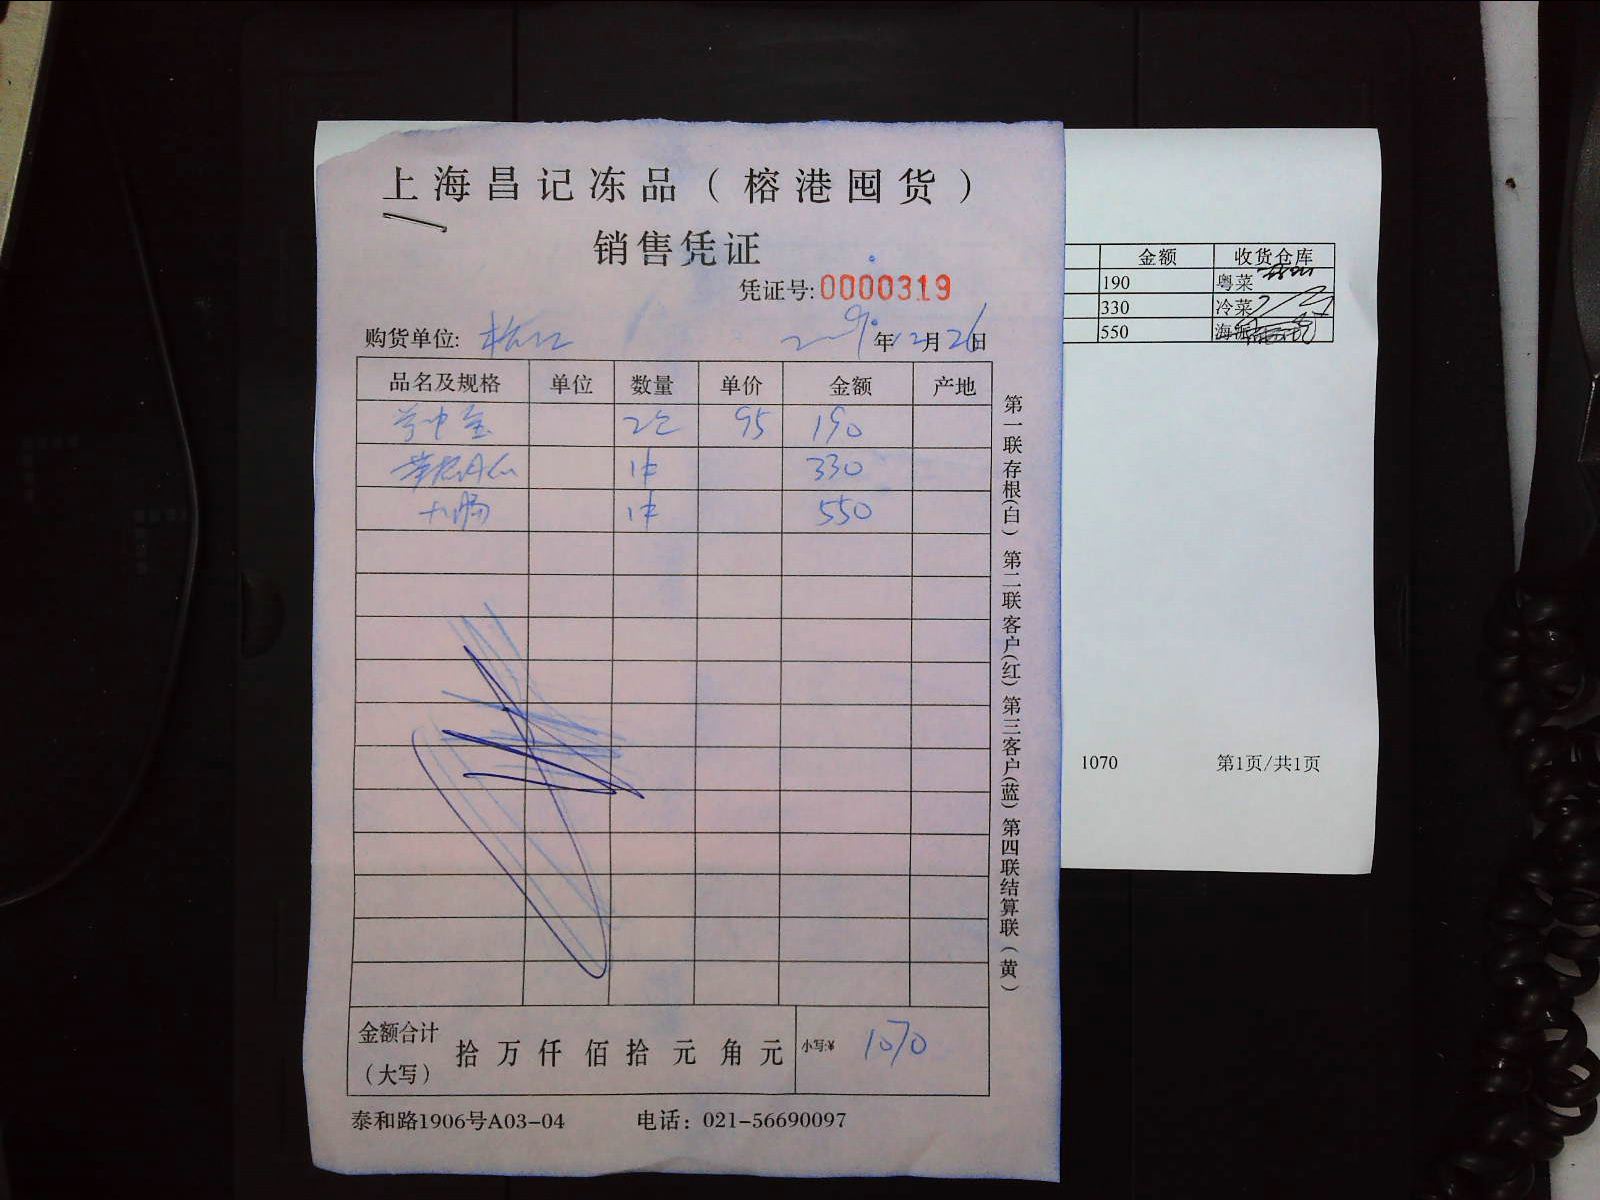 上海昌记冻品（榕港囤货）
销售凭证
凭证号:0000319
购货单位: 年12月26日
品名及规格 单位 数量 单价 金额 产地
2 95 190
1件 330
大肠 1件 550
金额合计（大写） 拾 万 仟 佰 拾 元 角 元 小写:¥ 1070
泰和路1906号A03-04 电话：021-56690097
第一联存根(白) 第二联客户(红) 第三客户(蓝) 第四联结算联(黄)
金额 收货仓库
190 粤菜
330 冷菜
550 海派
1070 第1页/共1页